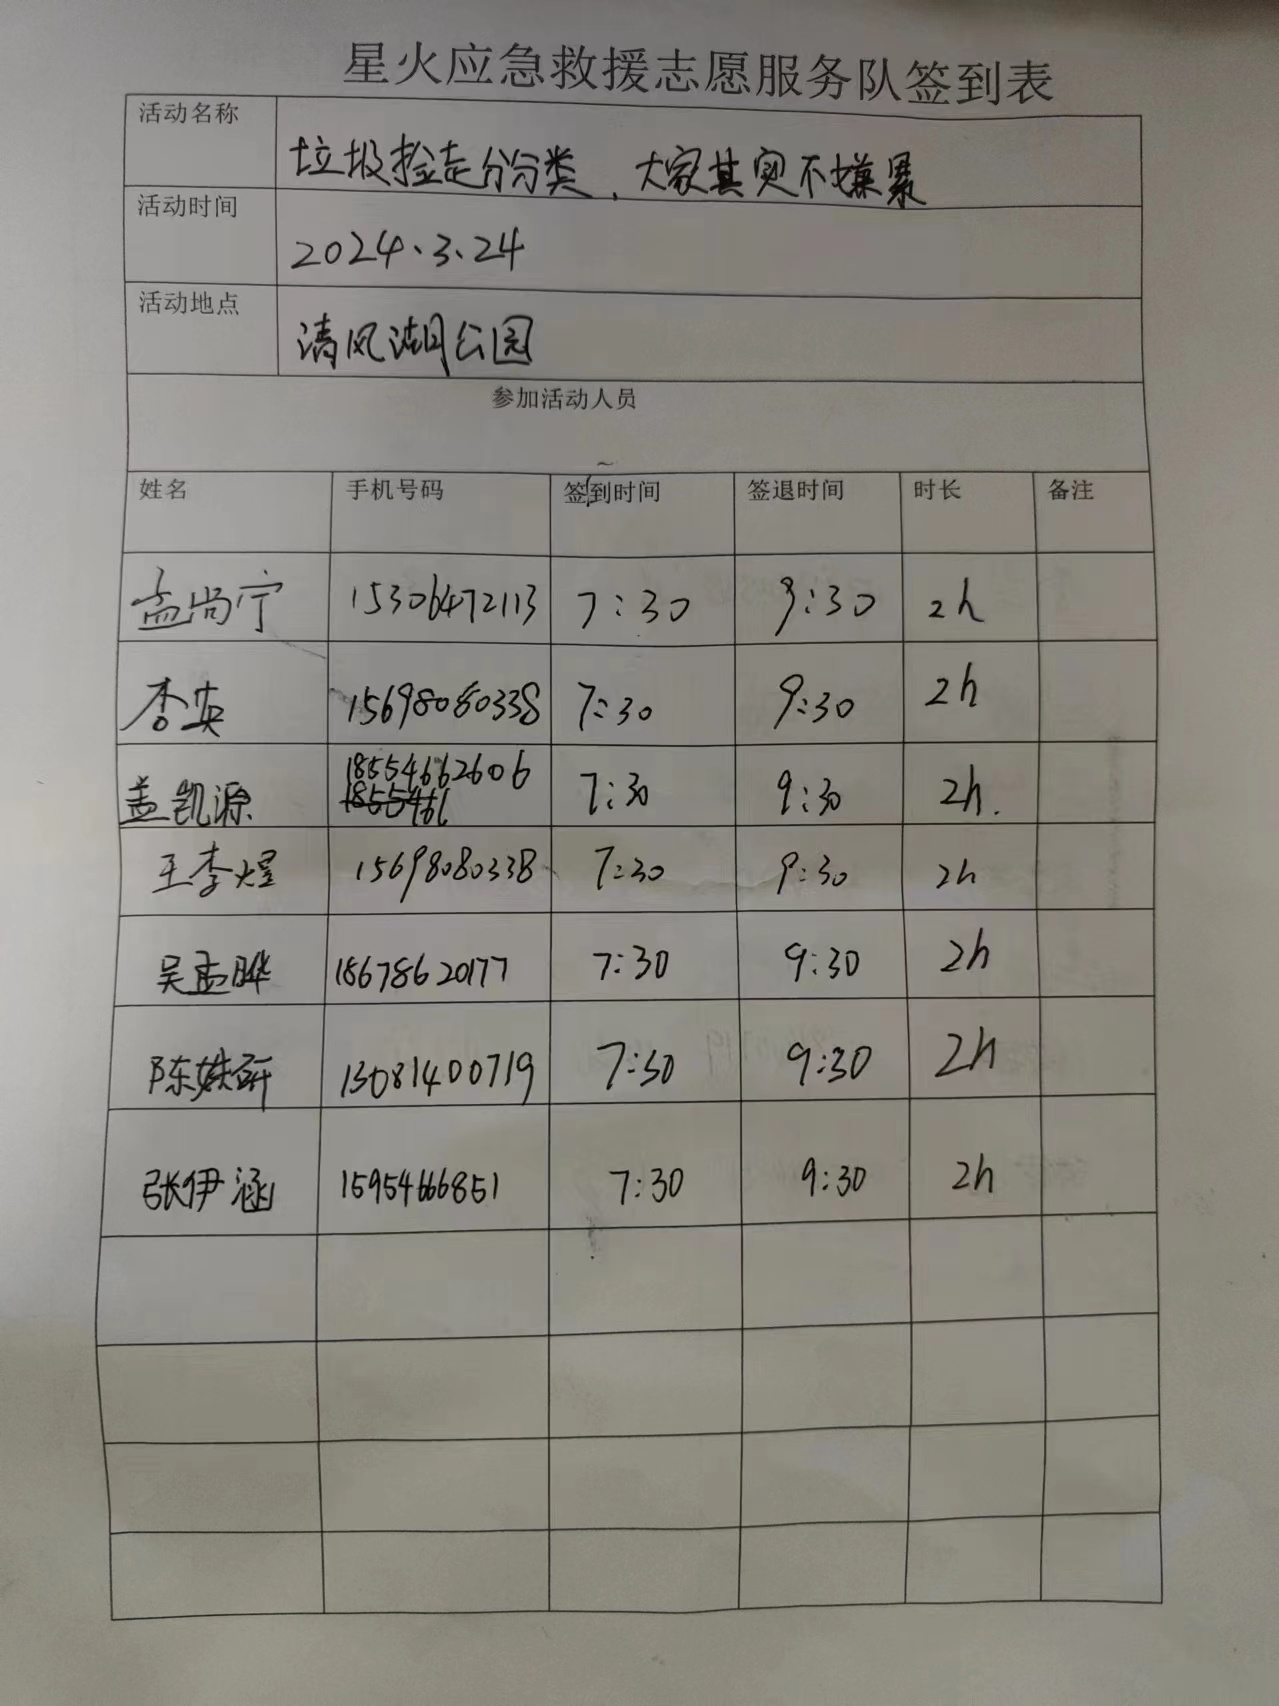 星火应急救援志愿服务队签到表
活动名称 垃圾捡走分分类、大家其实不嫌累
活动时间 2024.3.24
活动地点 清风湖公园
参加活动人员
姓名 手机号码 签到时间 签退时间 时长 备注
孟尚宁 15306472113 7:30 9:30 2h
李英 15698080338 7:30 9:30 2h
盖凯源 18554662606 7:30 9:30 2h.
1855466
王李煜 15698080338 7:30 9:30 2h
吴孟晔 18678620177 7:30 9:30 2h
陈姝研 13081400719 7:30 9:30 2h
张伊涵 15954666851 7:30 9:30 2h